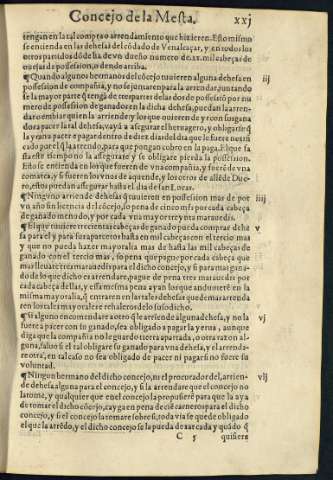 Concejo de la Mesta. xxj
tengan en la tal compra o arrendamiento que hizieren. Esto mismo
se entienda en las dehesas del cōdado de Venalcaçar, y en todos los
otros partidos dōde ha de vn dueño numero de xx. mil cabeças de
ouejas de possession, o dende arriba.
¶ Quando algunos hermanos del cōcejo tuuieren alguna dehesa en iij
possession de compañia, y no se juntaren para la arrendar, juntando
se la mayor parte q̄ tenga de tres partes de las dos de possessiō por nu
mero de possession de ganado en la dicha dehesa, puedan la arren-
dar o embiar quien la arriende y los que quisieren de yr con su gana
do a pacer la tal dehesa, vayā a assegurar el heruagero, y obligarse q̄
la yran a pacer y pagar dentro de diez dias del dia que le fuere notifi
cado por el q̄ la arrendo, para que pongan cobro en la paga. El que fa
sta este tiempo no la assegurare y se obligare pierda la possession.
Esto se entienda en los que fueren de vna compañia, y fuere de vna
comarca, y si fueren los vnos de aquende, y los otros de allēde Due-
ro, estos puedan assegurar hasta el dia de san Lucas.
¶ Ninguno arriende dehesas q̄ tuuieren en possession mas de por iiij
vn año sin licencia del cōcejo, so pena de cinco mrs por cada cabeça
de ganado menudo, y por cada vna mayor treynta marauedis.
¶ El que tuuiere trecientas cabeças de ganado pueda comprar dehe v
sa para el y para sus aparceros hasta en mil cabeças con el tercio mas
y que no pueda hazer mayoralia mas de hasta las mil cabeças de
ganado con el tercio mas, so pena que pague por cada cabeça que
mas lleuare tres marauedis para el dicho concejo, y si para mas gana-
do de lo que dicho es arrendare, pague de pena tres marauedis por
cada cabeça dellas, y essa mesma pena ayan los que anduuierē en la
misma mayoralia, q̄ entraren en las tales dehesas que demas arrenda
ren los tales mayorales e rehaleros de lo susodicho.
¶ Si alguno encomendare a otro q̄ le arriende alguna dehesa, y no la vj
fuere a pacer con su ganado, sea obligado a pagar la yerua, aunque
diga que la compañia no le guardo tierra apartada, o otra razon al-
guna, saluo si el tal obligare su ganado para vna dehesa, y el arrenda-
re otra, en tal caso no sea obligado de pacer ni pagar si no fuere su
voluntad.
¶ Ningun hermano del dicho concejo, ni el procurador del, arrien- vij
de dehesa alguna para el concejo, y si la arrendare que el concejo no
la tome, y qualquier que en el concejo la propusierē para que la aya
de tomar el dicho cōcejo, cayga en pena de cié carneros para el dicho
concejo, y si el concejo la tomare sobre si, toda via se quede obligado
el que la arrēdo, y el dicho concejo se la pueda desarcada y quádo q̄
C 5 quisiere